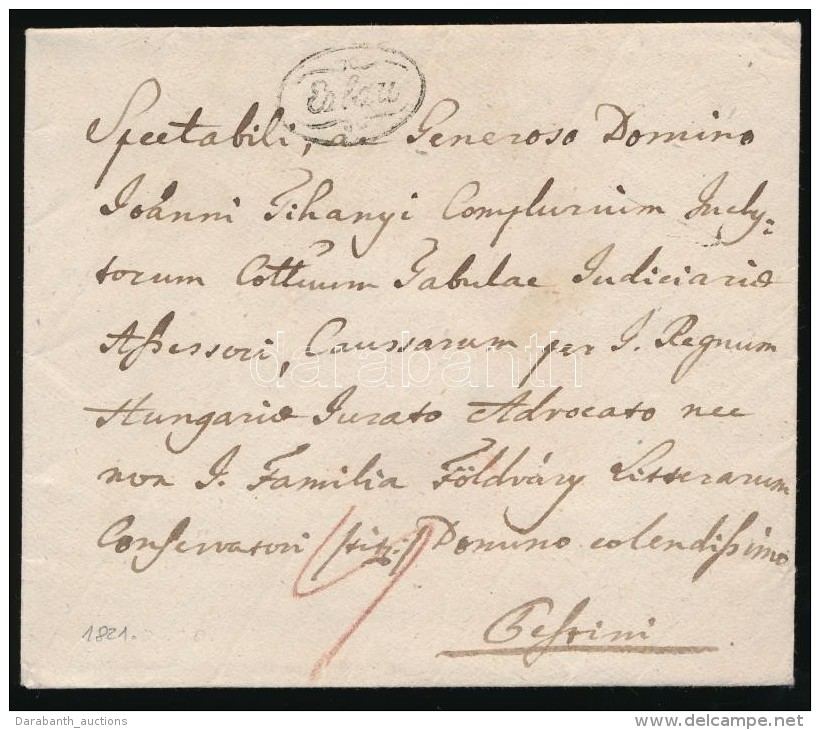 Erlau
Spectabili, ac Generoso Domino
Joánni Tihanyi Complurium Incly=
torum Cottuum Tabulae Judiciariæ
Aſseſsori, Caussarum per I. Regnum
Hungariæ Jurato Advocato nec
non I. Familia Földváry Litterarum
Conservatori /titt:/ Domino colendiſsimo
Pestini
1821.
darabanth
Darabanth_auctions
delcampe.net